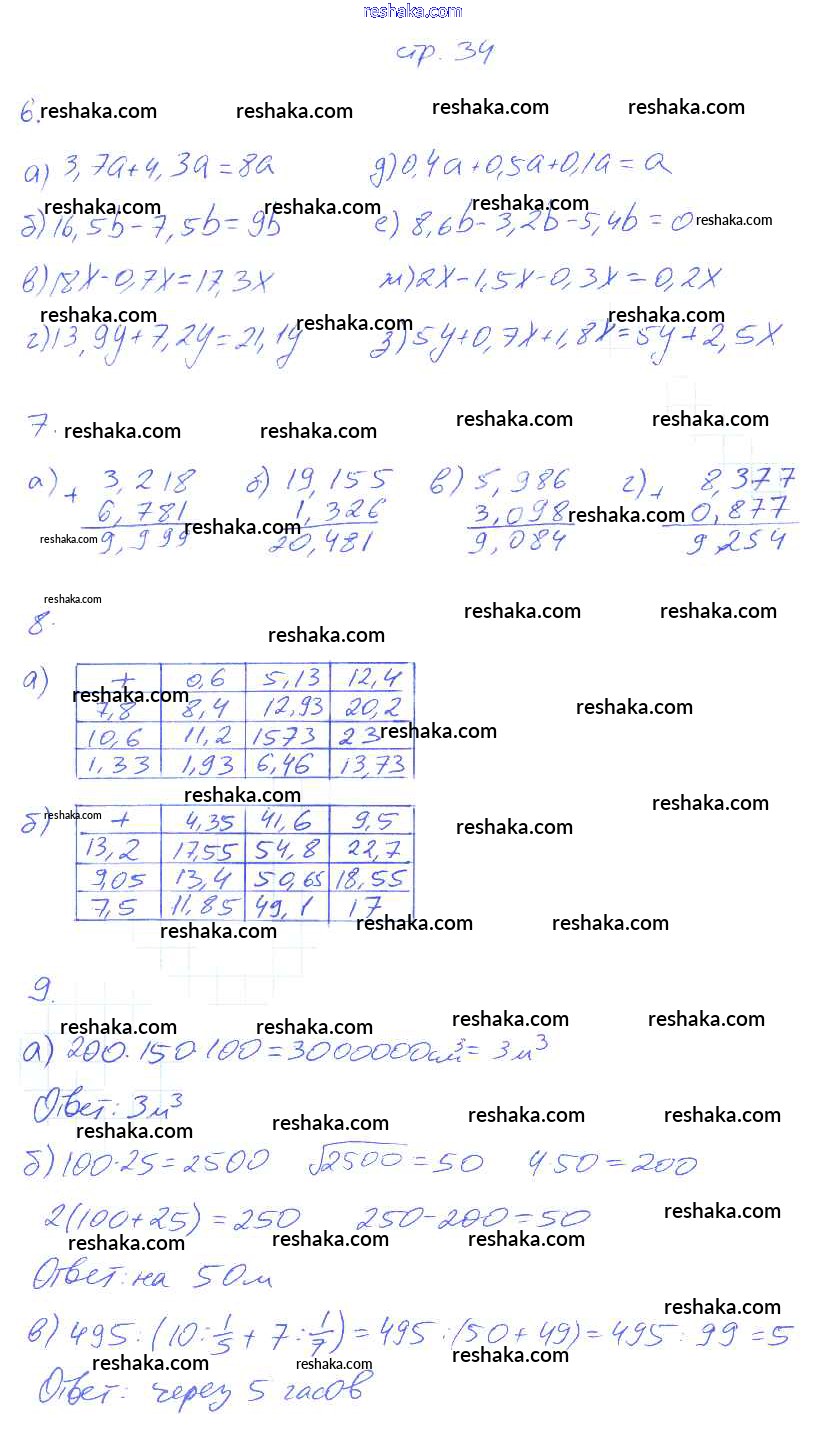 reshaka.com
стр. 34
6. reshaka.com reshaka.com reshaka.com reshaka.com
а) 3,7a+4,3a=8a д) 0,4a+0,5a+0,1a=a
reshaka.com reshaka.com reshaka.com
б) 16,5b-7,5b=9b е) 8,6b-3,2b-5,4b=0 reshaka.com
в) 18x-0,7x=17,3x ж) 2x-1,5x-0,3x=0,2x
reshaka.com reshaka.com reshaka.com
г) 13,9y+7,2y=21,1y з) 5y+0,7x+1,8x=5y+2,5x
7. reshaka.com reshaka.com reshaka.com reshaka.com
а) + 3,218 б) 19,155 в) 5,986 г) + 8,377
6,781 1,326 3,098 0,877
reshaka.com reshaka.com
reshaka.com 9,999 20,481 9,084 9,254
reshaka.com reshaka.com reshaka.com
8. reshaka.com
а) + 0,6 5,13 12,4
reshaka.com reshaka.com
7,8 8,4 12,93 20,2
10,6 11,2 1573 23 reshaka.com
1,33 1,93 6,46 13,73
reshaka.com reshaka.com
б) reshaka.com + 4,35 41,6 9,5 reshaka.com
13,2 17,55 54,8 22,7
9,05 13,4 50,65 18,55
7,5 11,85 49,1 17
reshaka.com reshaka.com reshaka.com
9.
reshaka.com reshaka.com reshaka.com reshaka.com
а) 200·150·100=3000000см³=3м³
Ответ: 3м³
reshaka.com reshaka.com reshaka.com reshaka.com
б) 100·25=2500 √2500=50 4·50=200
2(100+25)=250 250-200=50 reshaka.com
reshaka.com reshaka.com reshaka.com
Ответ: на 50м
reshaka.com
в) 495:(10:1/5+7:1/7)=495:(50+49)=495:99=5
reshaka.com reshaka.com reshaka.com
Ответ: через 5 часов